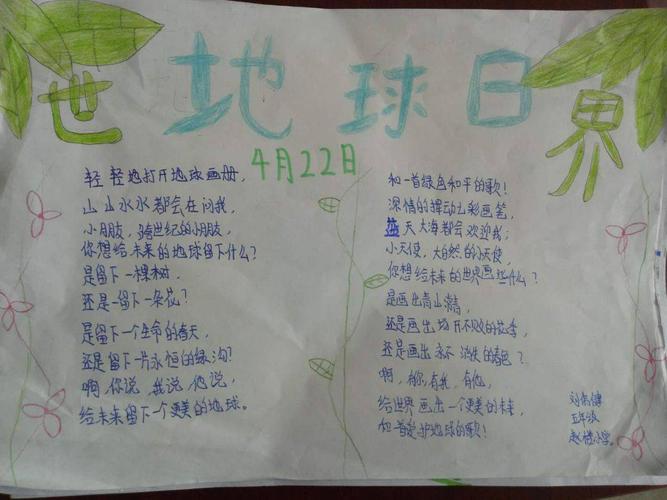 世 地球日 界
4月22日
轻轻地打开地球画册,
山山水水都会在问我,
小朋友,跨世纪的小朋友,
你想给未来的地球留下什么?
是留下一棵树,
还是留下一朵花?
是留下一个生命的春天,
还是留下一片永恒的绿洲?
啊,你说,我说,他说,
给未来留下一个更美的地球。
和一首绿色和平的歌!
深情的挥动山彩画笔,
蓝天大海都会欢迎我;
小天使,大自然的小天使,
你想给未来的世界画些什么?
是画出青山滴高,
还是画出场开不败的花季,
还是画出永不消失的春色?
啊,有你,有我,有他,
给世界画出一个更美的未来,
和一首守护地球的歌!
五年级
赵楼小学。